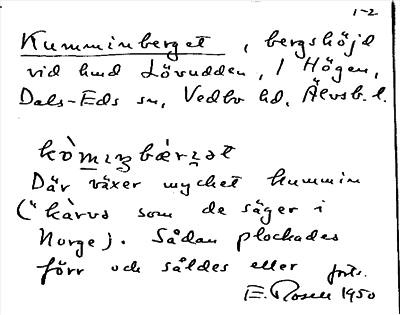 1-2
Kumminberget, bergshöjd
vid hmd Lövudden, 1 Högen,
Dals-Eds sn, Vedbo hd, Älvsb. l.
kòmiṇbǽrɪ̯ət
Där växer mycket kummin
("kàrvə som de säger i
Norge). Sådan plockades
förr och såldes eller forts.
E. Rosell 1950